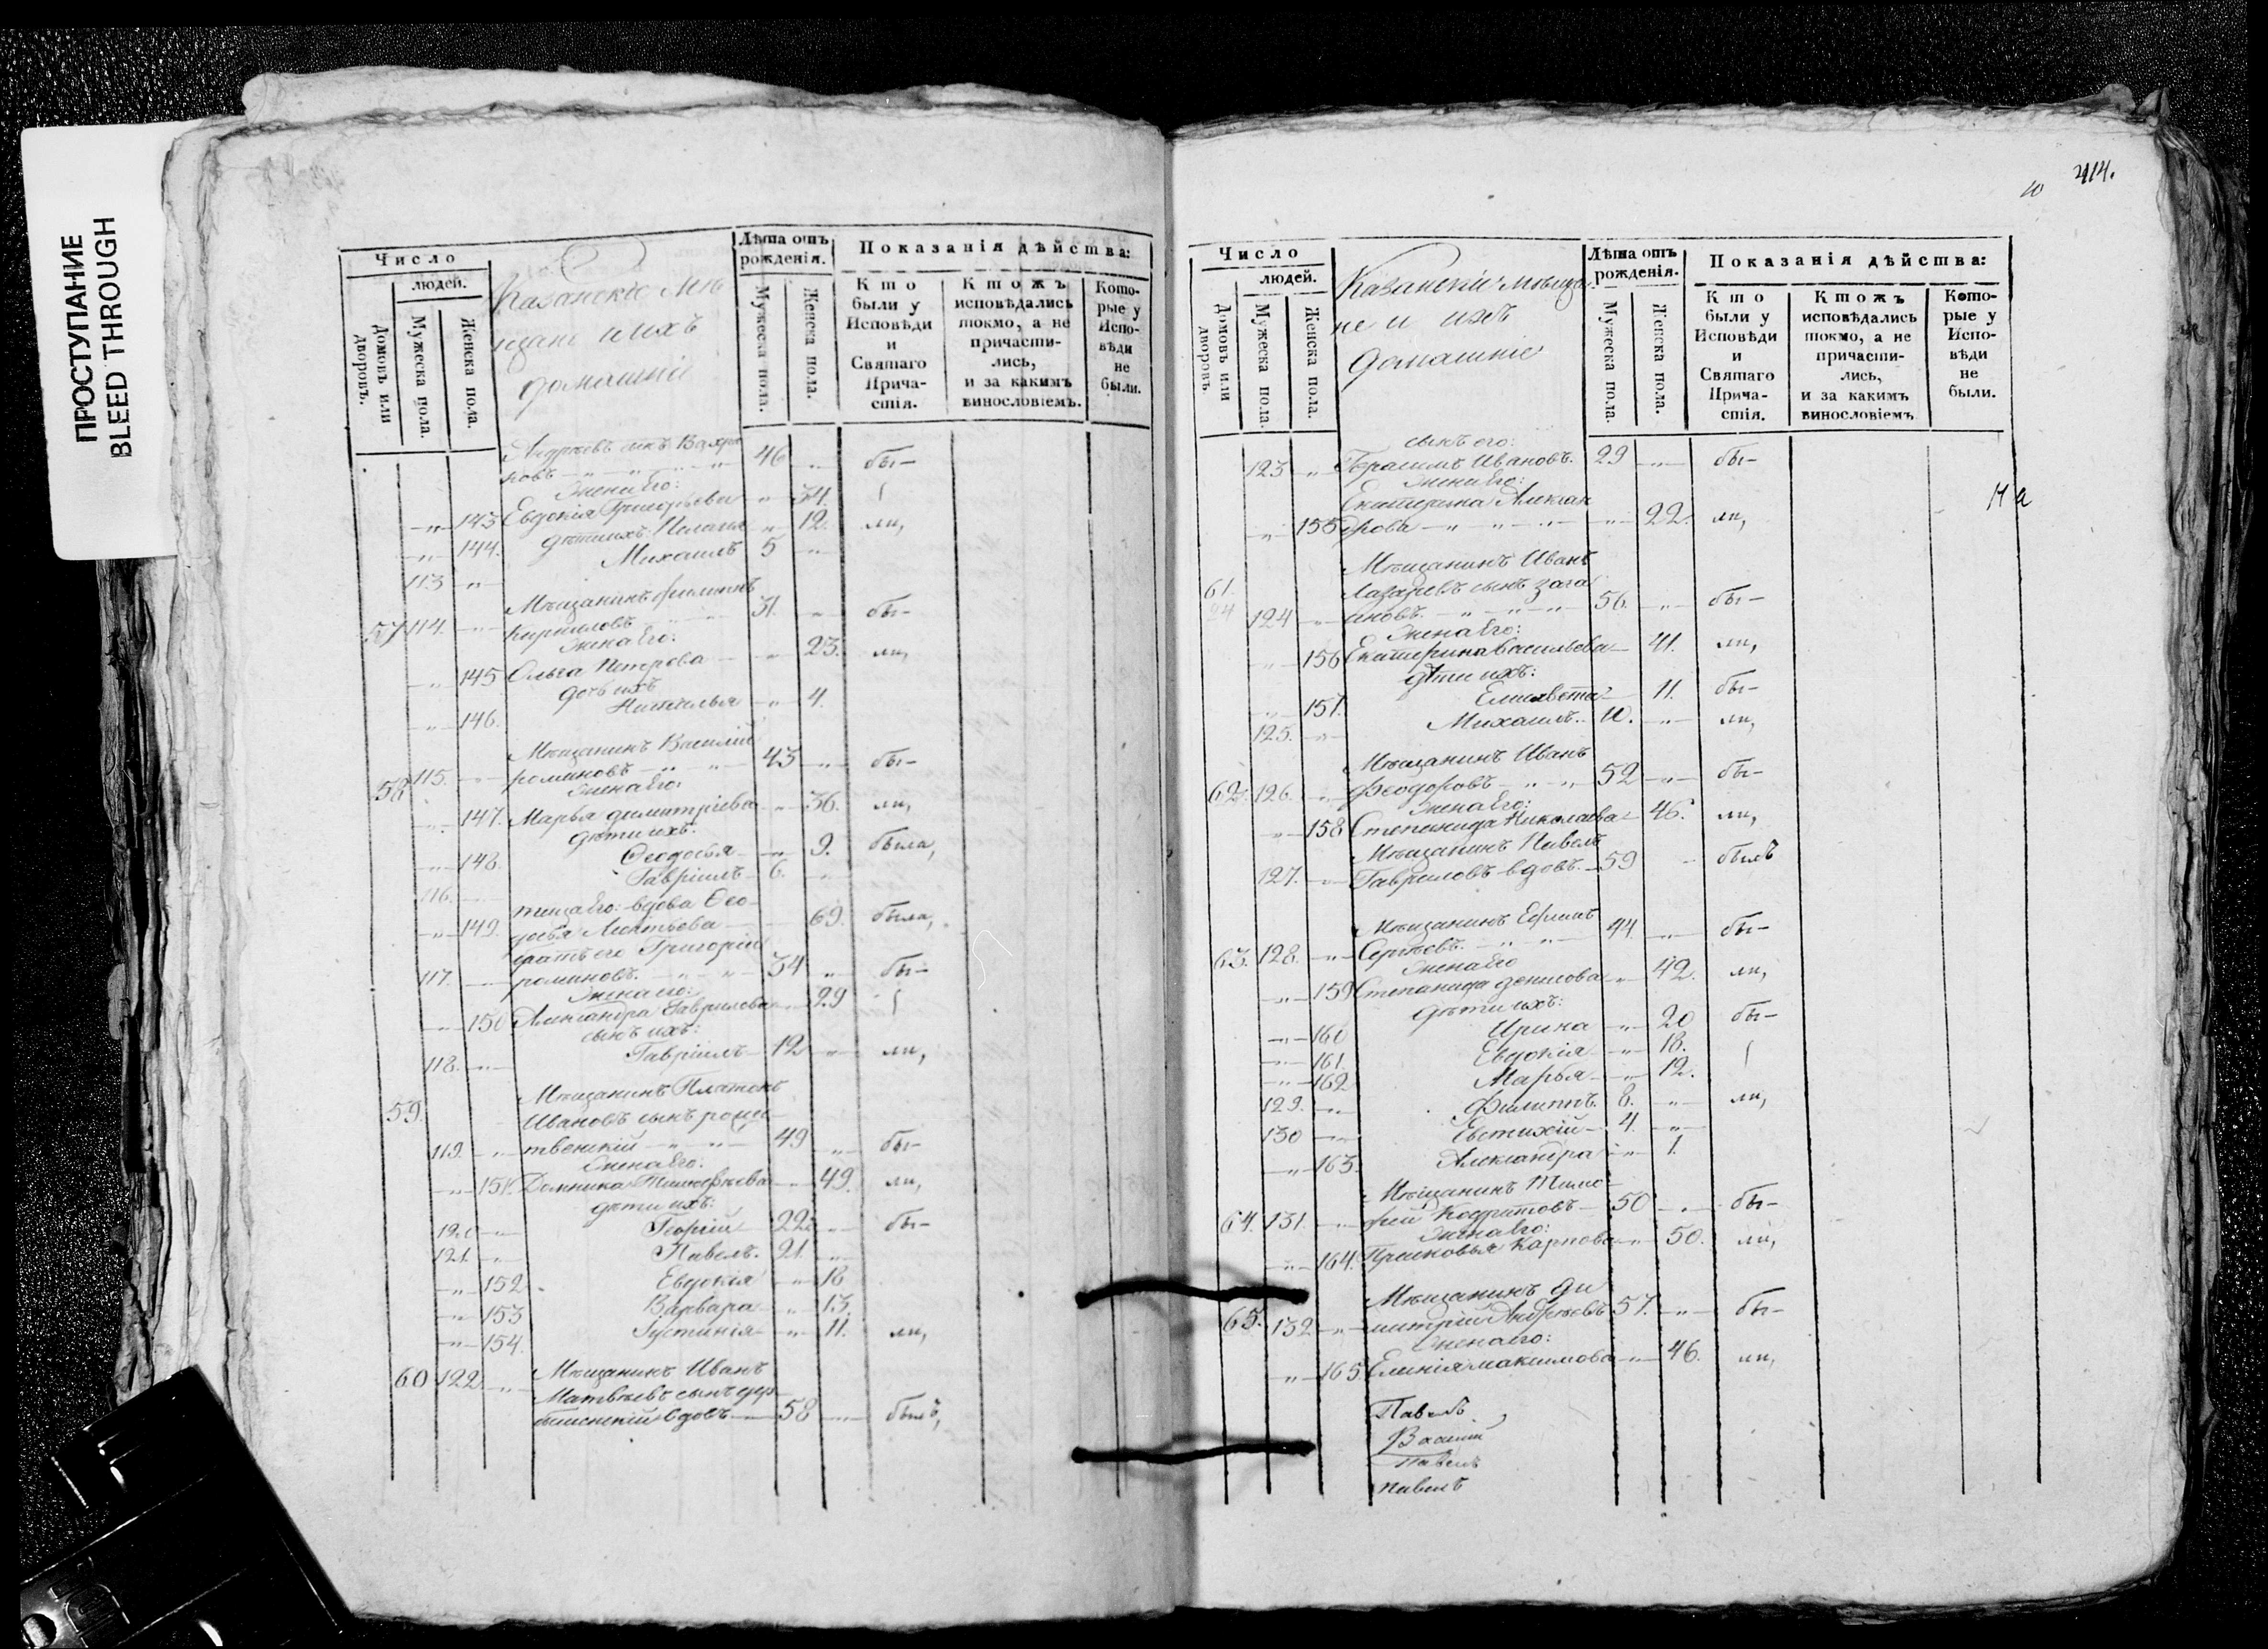 ПРОСТУПАНИЕ
BLEED THROUGH
Число
людей.
Домовъ или дворовъ.
Мужеска пола.
Женска пола.
Казанскіе Мѣ
щане и ихъ
домашніе
Лѣта отъ рожденія.
Мужеска пола.
Женска пола.
Показанія дѣйства:
Кто были у Исповѣди и Святаго Причастія.
Ктожъ исповѣдались токмо, а не причастились, и за какимъ винословіемъ.
Которые у Исповѣди не были.
Андреевъ сынъ
ковъ 46 " бы-
Жена Его:
" 143 Евдокія Григорьева " 34.
" 144. дѣти ихъ: Пелагія " 12. ли,
113 " Михаилъ 5 "
Мѣщанинъ Филиппъ
57 114. " Кириловъ 31. " бы-
Жена Его:
" 145 Ольга Петрова " 23. ли,
дочь ихъ
" 146. Наталья " 4.
Мѣщанинъ Василій
58 115. " романовъ 43 " бы-
Жена Его:
" 147. Марья димитріева " 36. ли,
дѣти ихъ:
" 148. Ѳеодосья " 9. была,
116. Гавріилъ 6. "
теща Его: вдова Ѳео-
" 149. досья Леонтьева 69. была,
братъ его Григорій
117. романовъ. 34 " бы-
Жена его:
" 150 Александра Гаврилова 29
сынъ ихъ:
118. " Гавріилъ 12 " ли,
Мѣщанинъ Платонъ
59. Ивановъ сынъ рожде-
119. " твенскій 49 " бы-
Жена Его:
" 151. Домника Тимофѣева 49. ли,
дѣти ихъ:
120 " Георгій 22. " бы-
121. " Павелъ. 21. "
" 152 Евдокія " 18
" 153 Варвара " 13.
" 154. Іустинія " 11. ли,
60 122 " Мѣщанинъ Иванъ
Матвѣевъ сынъ
вдовъ 58 былъ,
10 414.
Число
людей.
Домовъ или дворовъ.
Мужеска пола.
Женска пола.
Казанскіе мѣща
не и ихъ
домашніе
Лѣта отъ рожденія.
Мужеска пола.
Женска пола.
Показанія дѣйства:
Кто были у Исповѣди и Святаго Причастія.
Ктожъ исповѣдались токмо, а не причастились, и за какимъ винословіемъ
Которые у Исповѣди не были.
сынъ его:
123 " Герасимъ Ивановъ. 29 " бы-
Жена Его:
Екатерина Алексан
" 155 дрова " 22. ли,
Мѣщанинъ Иванъ
61. Лазаревъ сынъ
124 " 56. " бы-
Жена Его:
" 156 Екатерина Васильева 41. ли,
дѣти ихъ:
" 157. Елисавета 11. бы-
125. " Михаилъ. 10. " ли,
Мѣщанинъ Иванъ
62. 126. " Ѳеодоровъ 52 " бы-
Жена Его:
" 158 Степанида Николаева 46. ли,
Мѣщанинъ Павелъ
127. " Гавриловъ вдовъ. 59 былъ
Мѣщанинъ Ефимъ
63. 128. " Сергѣевъ. 44. " бы-
Жена Его
" 159 Степанида денисова " 42. ли,
дѣти ихъ:
" 160 Ирина " 20 бы-
" 161. Евдокія " 18.
" 162 Марья " 12.
129. " Филиппъ. 8. " ли,
130 " Евтихій 4. "
" 163. Александра " 1.
Мѣщанинъ Тимо-
64. 131. " фей Кодратовъ 50 " бы-
Жена Его:
" 164. Прасковья Карпова " 50. ли,
Мѣщанинъ Ди
65. 132 " митрій Андреевъ 57. " бы-
Жена его:
" 165. максимова " 46. ли,
Павелъ
Василій
Павелъ
павелъ